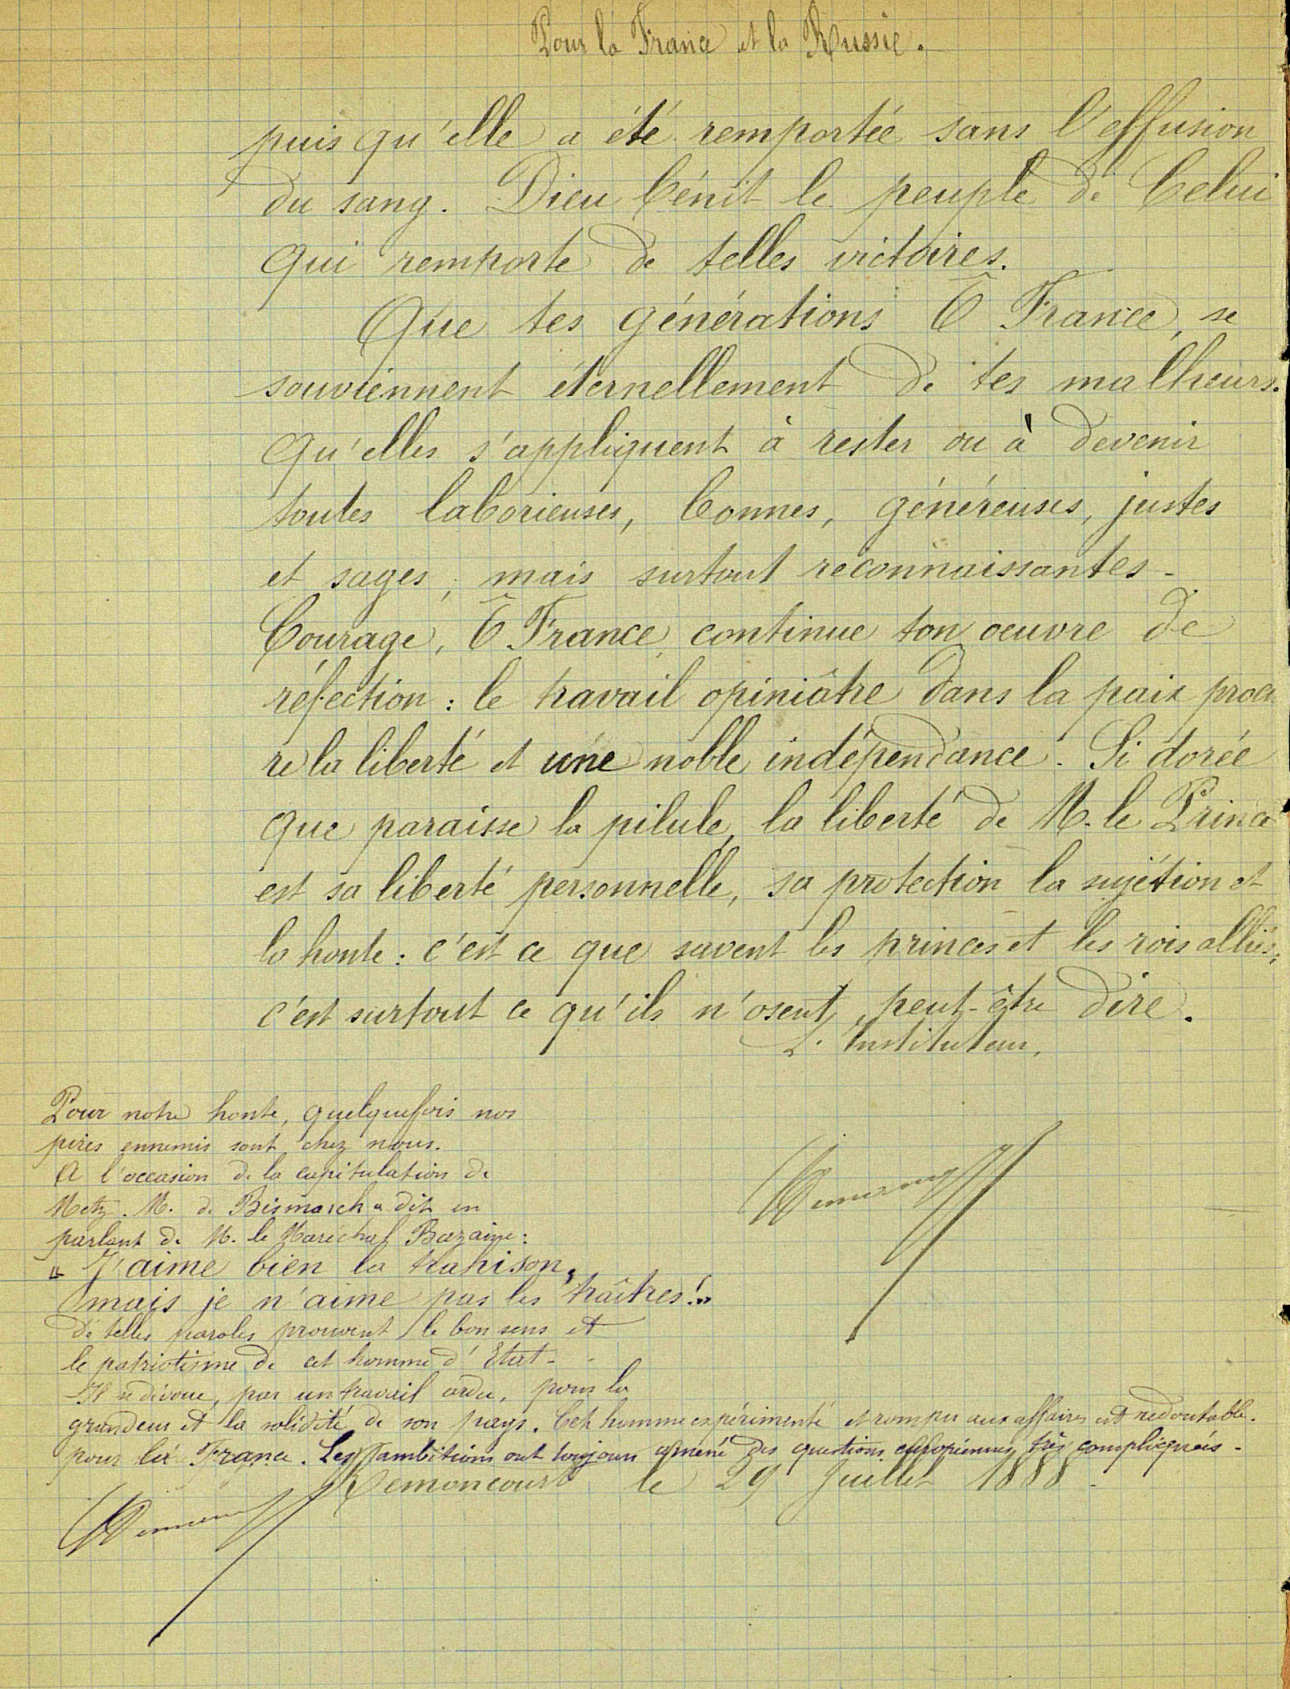 Pour la France et la Russie.
puis qu'elle a été remportée sans l'effusion
du sang. Dieu bénit le peuple de Celui
qui remporte de telles victoires.
Que tes générations Ô France, se
souviennent éternellement de tes malheurs.
Qu'elles s'appliquent à rester ou à devenir
toutes laborieuses, bonnes, généreuses, justes
et sages, mais surtout reconnaissantes -
Courage, Ô France, continue ton oeuvre de
réfection : le travail opiniâtre dans la paix procu
re la liberté et une noble indépendance. Si dorée
que paraisse la pilule, la liberté de M. le Prince
est sa liberté personnelle, sa protection la sujétion et
la honte : c'est ce que savent les princes et les rois alliés,
c'est surtout ce qu'ils n'osent, peut-être dire.
L'Instituteur,
Pour notre honte, quelquefois nos
pires ennemis sont chez nous.
A l'occasion de la capitulation de
Metz. M. de Bismarck a dit en
parlant de M. le Maréchal Bazaine :
"J'aime bien la trahison,
mais je n'aime pas les traîtres!"
de telles paroles prouvent le bon sens et
le patriotisme de cet homme d'Etat -
Il se dévoue, par un travail ardu, pour la
grandeur et la solidité de son pays. Cet homme expérimenté et rompu aux affaires est redoutable.
pour la France. Les ambitions ont toujours amené des questions européennes très compliquées -
Remoncourt le 29 Juillet 1888 -